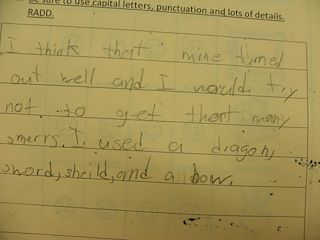 Be sure to use capital letters, punctuation and lots of details.
RADD.
I think that mine turned
out well and I would try
not to get that many
smerrs. I used a dragon,
sword, sheild, and a bow.